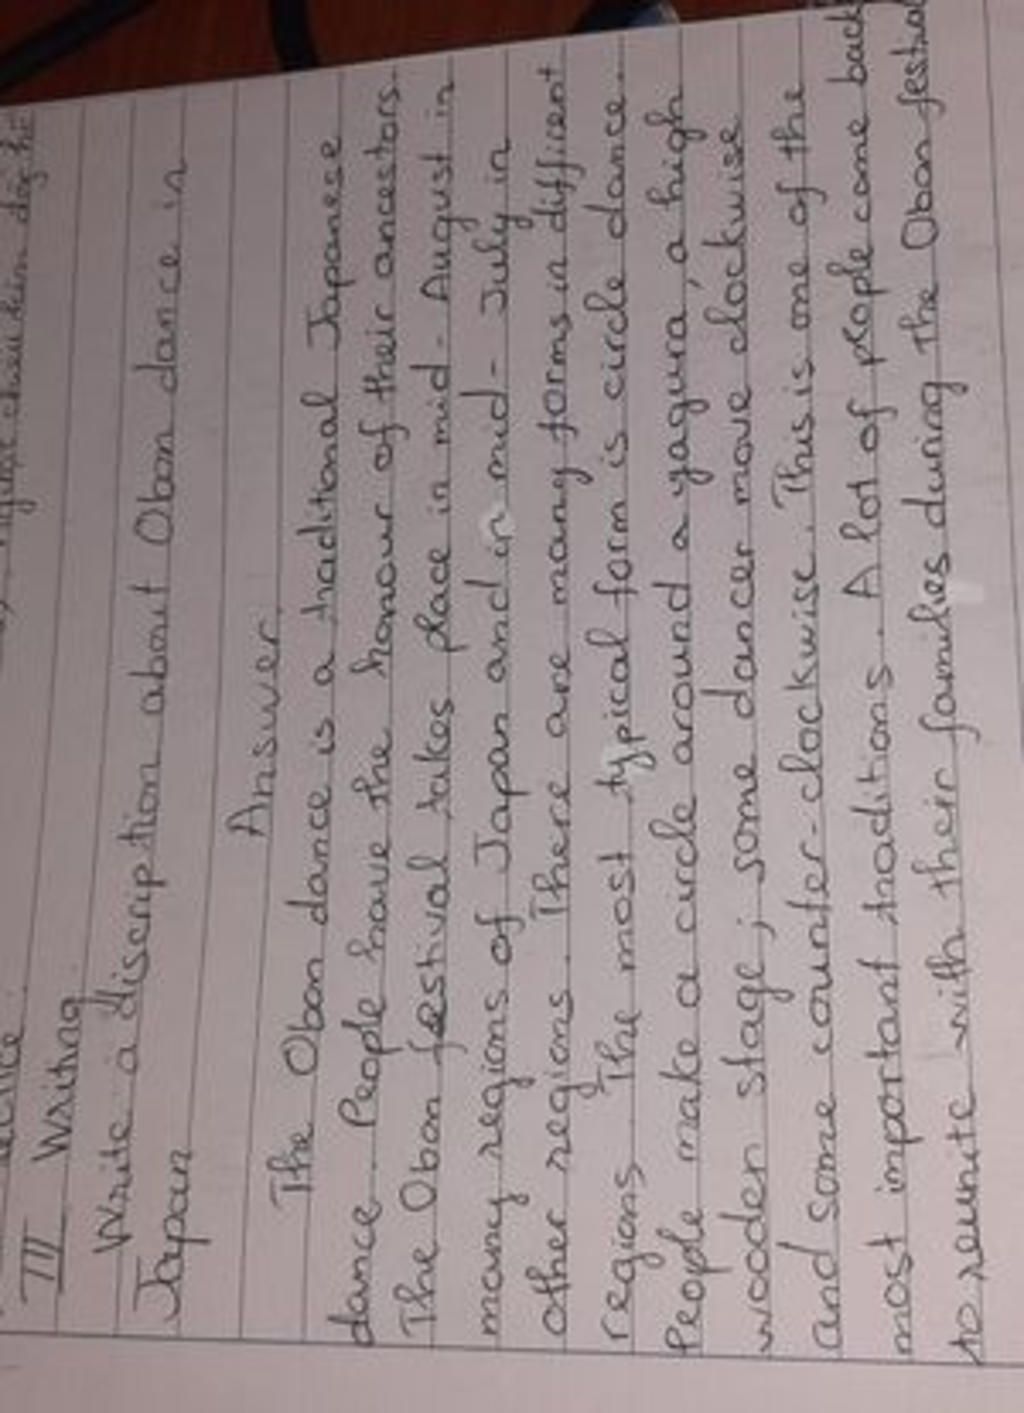 III Writing
Write a discription about Obon dance in
Japan
Answer
The Obon dance is a traditional Japanese
dance. People have the honour of their ancestors.
The Obon festival takes place in mid - August in
many regions of Japan and in mid - July in
other regions. There are many forms in difficent
regions. The most typical form is circle dance.
People make a circle around a yagura, a high
wooden stage; some dancer move clockwise
and some counter-clockwise. This is one of the
most important traditions. A lot of people come back
to reunite with their families during the Obon festival